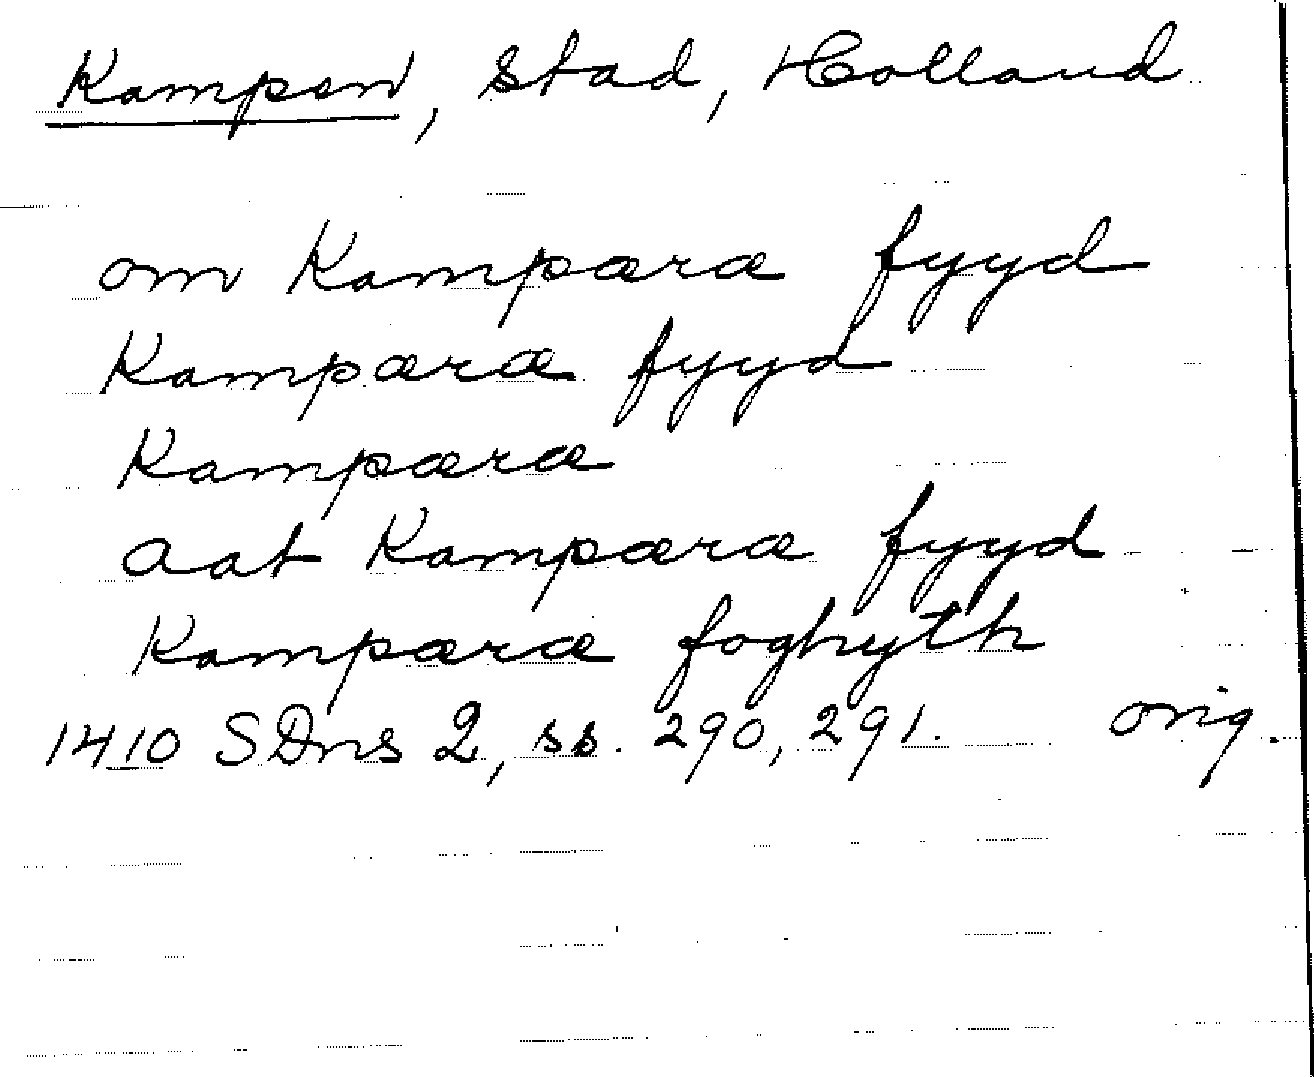 Kampen, Stad, Holland
om Kampæræ fyyd
Kampæræ fyyd
Kampæræ
aat Kampæræ fyyd
Kampæræ foghyth
1410 SDns 2, ss. 290, 291. orig.